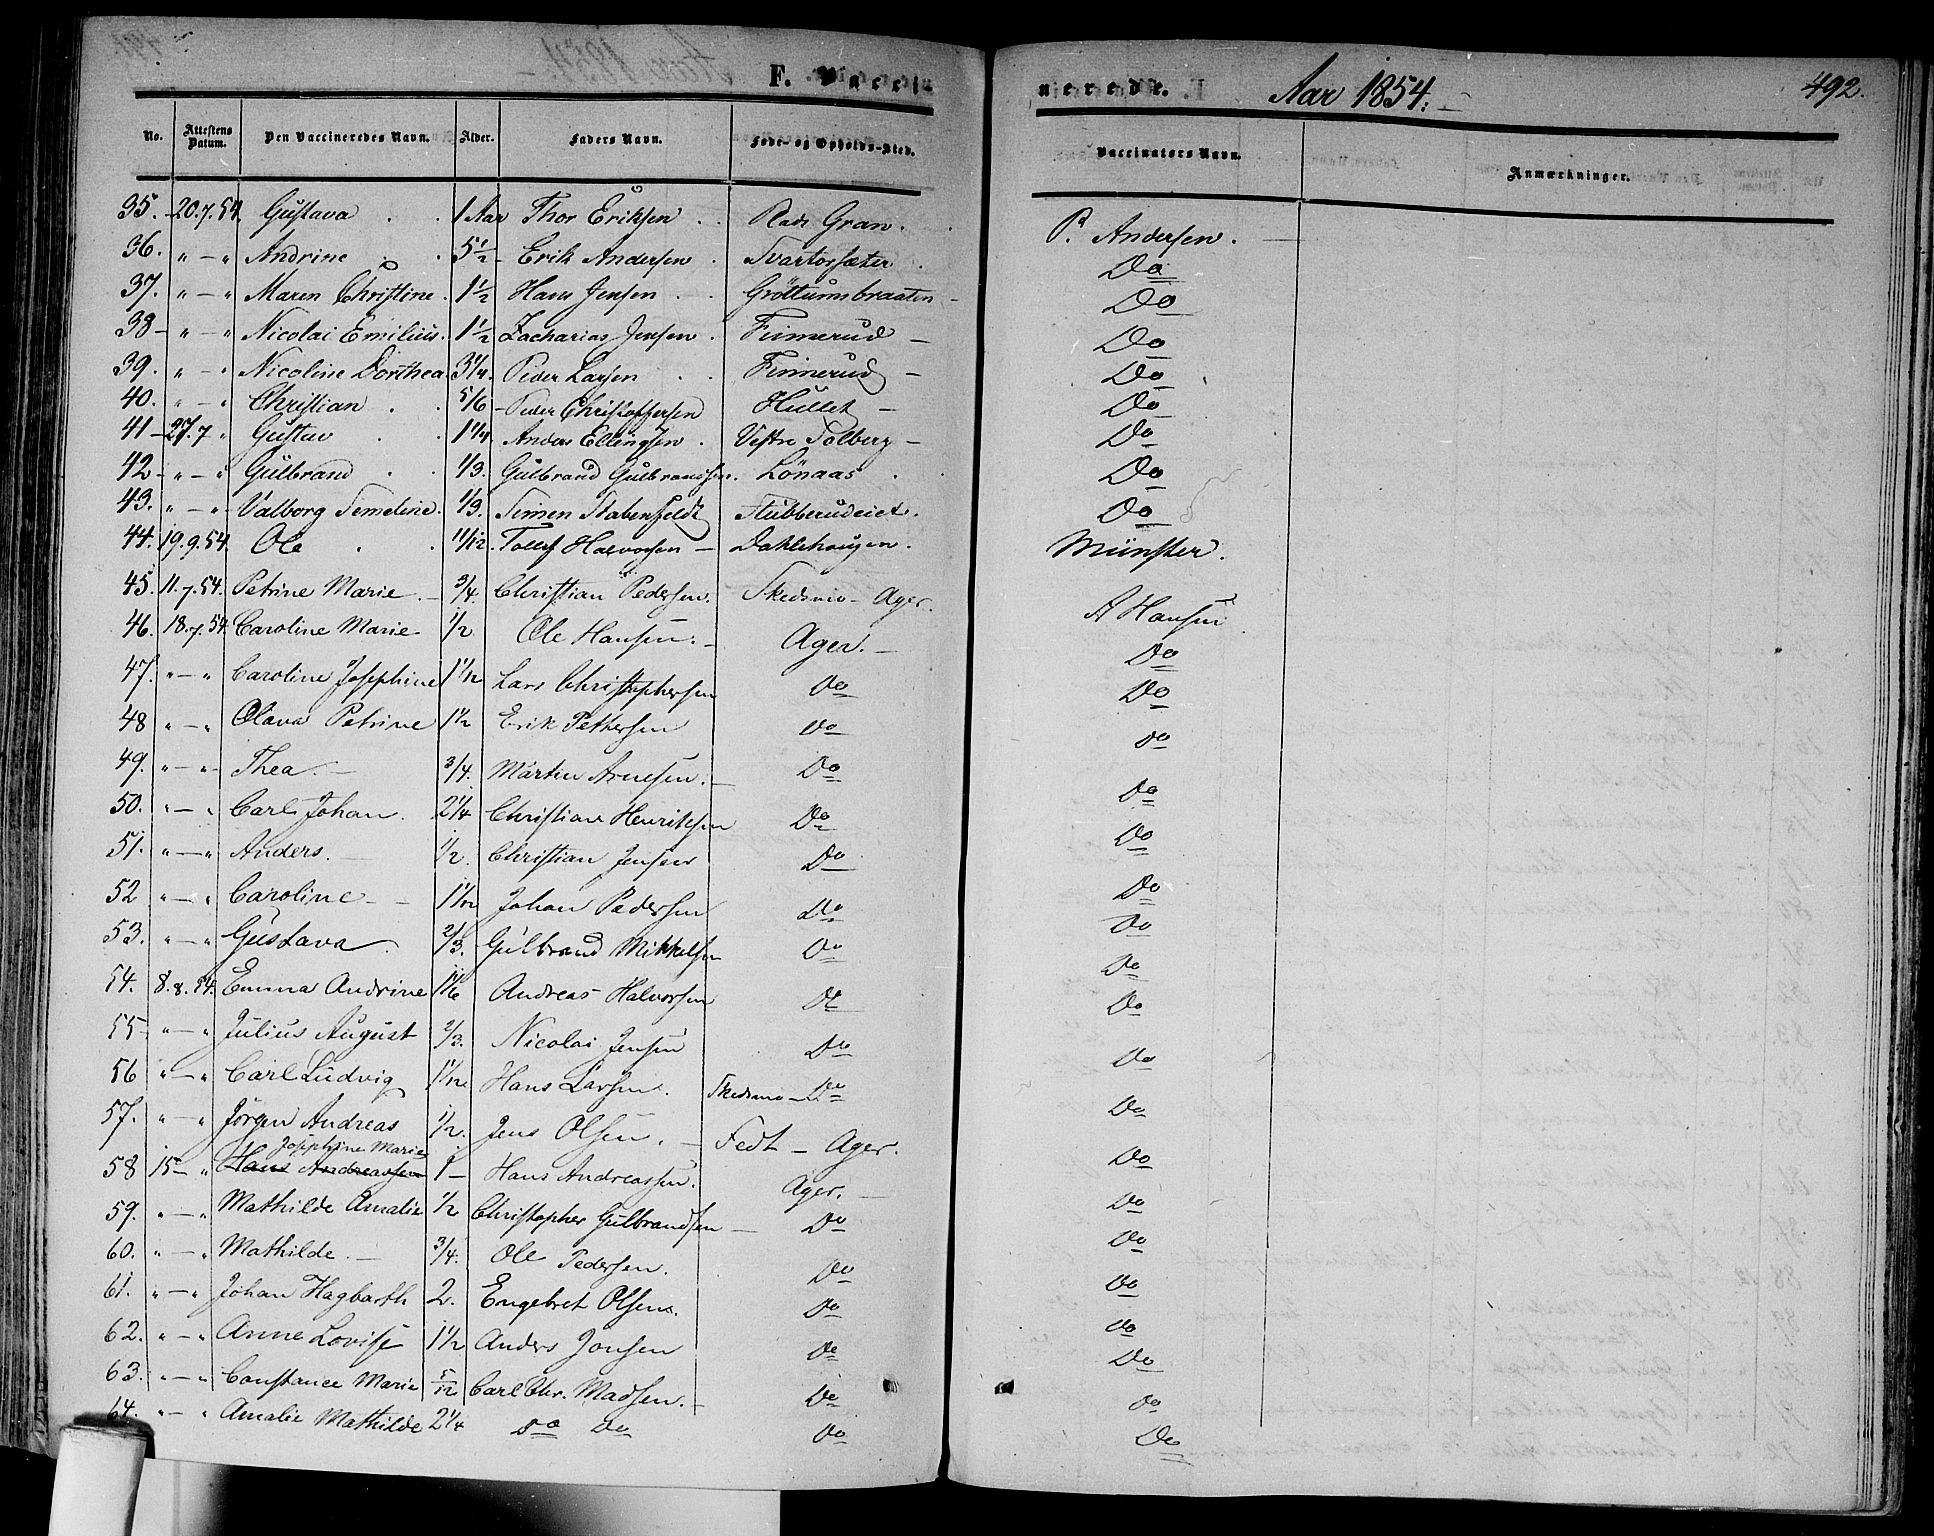 F. Vaccinerede. Aar 1854. 492.
No. Attestens Datum. Den Vaccineredes Navn. Alder. Faders Navn. Føde- og Opholds-Sted. Vaccinators Navn. Anmærkninger.
35. 20.7.54. Gustava 1 Aar Thor Eriksen Gran. P. Andersen.
36. " — " Andrine 5 1/2 Erik Andersen Svartorsæter Do
37. " — " Maren Christine. 1 1/2 Hans Jensen Gröttumsbraaten Do
38 " — " Nicolai Emilius. 1 1/2 Zacharias Jensen Finnerud Do
39. " — " Nicoline Dorthea 3 1/4. Peder Larsen Finnerud Do
40. " — " Christian 5/6 Peder Christoffersen Hullet Do
41 27.7 " Gustav 1 1/4 Anders Ellingsen Vestre Solberg Do
42 " — " Gulbrand 1/3. Gulbrand Gulbrandsen. Lönaas Do
43. " — " Valborg Semeline. 1/3. Simen Stabenfeldt Stubberudeiet. Do
44. 19.9.54. Ole 11/12. Tollef Halvorsen Dahlehaugen. Münster.
45. 11.7.54. Petrine Marie 3/4. Christian Pedersen. Skedsmo - Ager. A Hansen
46. 18.7.54. Caroline Marie 1/2 Ole Hansen. Ager. Do
47. " — " Caroline Josephine 1 1/12 Lars Christophersen Do Do
48 " — " Olava Petrine 1 1/2 Erik Pettersen Do Do
49. " — " Thea. 3/4. Martin Arnesen. Do Do
50. " — " Carl Johan. 2 1/4 Christian Henriksen Do Do
51. " — " Anders. 1/2. Christian Jensen Do Do
52 " — " Caroline 1 1/12 Johan Pedersen Do Do
53. " — " Gustava 2/3. Gulbrand Mikkelsen Do Do
54. 8.8.54. Emma Andrine 1 1/6 Andreas Halvorsen Do Do
55 " — " Julius August 2/3. Nicolai Jensen Do Do
56 " — " Carl Ludvig 1 1/12 Hans Larsen. Skedsmo - Do Do
57. " — " Jörgen Andreas 1/2. Jens Olsen. Fedt - Ager. Do
Josephine Marie
58 15 — " Hans Andreassen 1 — Hans Andreassen. Ager. Do
59. " — " Mathilde Amalie 1/2 Christopher Gulbrandsen Do Do
60. " — " Mathilde 3/4. Ole Pedersen. Do Do
61. " — " Johan Hagbarth 2. Engebret Olsen. Do Do
62. " — " Anne Lovise 1 1/2 Anders Jonsen Do Do
63. " — " Constance Marie 5/12 Carl Chr. Madsen. Do Do
64. " — " Amalie Mathilde 2 1/4 Do Do Do Do